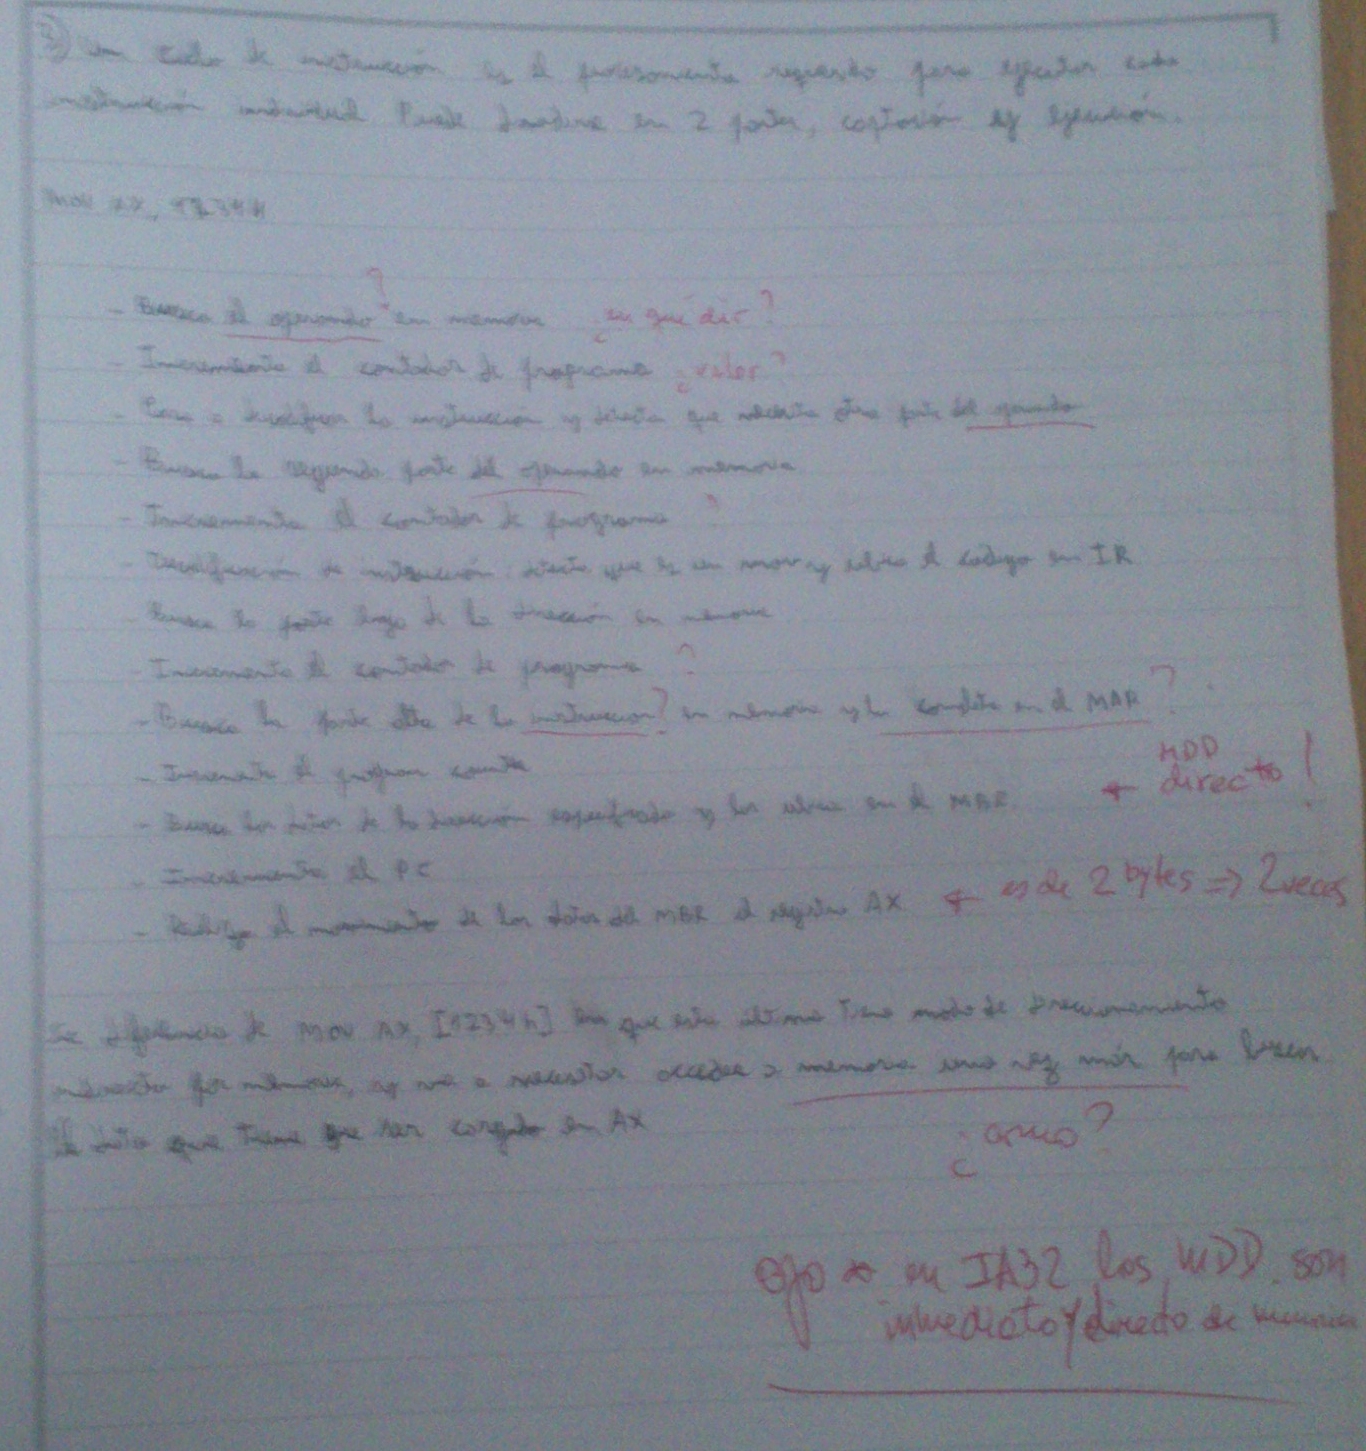 2) Un ciclo de instrucción es el procesamiento requerido para ejecutar cada
instrucción individual. Puede dividirse en 2 partes, captación y ejecución.
MOV AX, 1234H
?
- Busca el operando en memoria ¿en qué dir?
- Incrementa el contador de programa ¿valor?
- Pasa a decodificar la instrucción y detecta que necesita otra parte del operando
- Busca la segunda parte del operando en memoria
- Incrementa el contador de programa ?
- Decodificación de instrucción: detecta que es un mov y ubica el código en IR
- Busca la parte baja de la dirección en memoria
- Incrementa el contador de programa ?
- Busca la parte alta de la instrucción? en memoria y la en el MAR ?
- Incrementa el program
MDD
- Busca los datos de la dirección especificada y los ubica en el MBR. ← directo!
- Incrementa el PC
- Realiza el movimiento de los datos del MBR al registro AX ← es de 2 bytes ⇒ 2 veces
La diferencia de MOV AX, [1234h] es que este último tiene modo de direccionamiento
por memoria, y va a necesitar acceder a memoria una vez más para buscar
el dato que tiene que ser cargado en AX
¿como?
ojo * en IA32 los MDD son
inmediato y directo de memoria